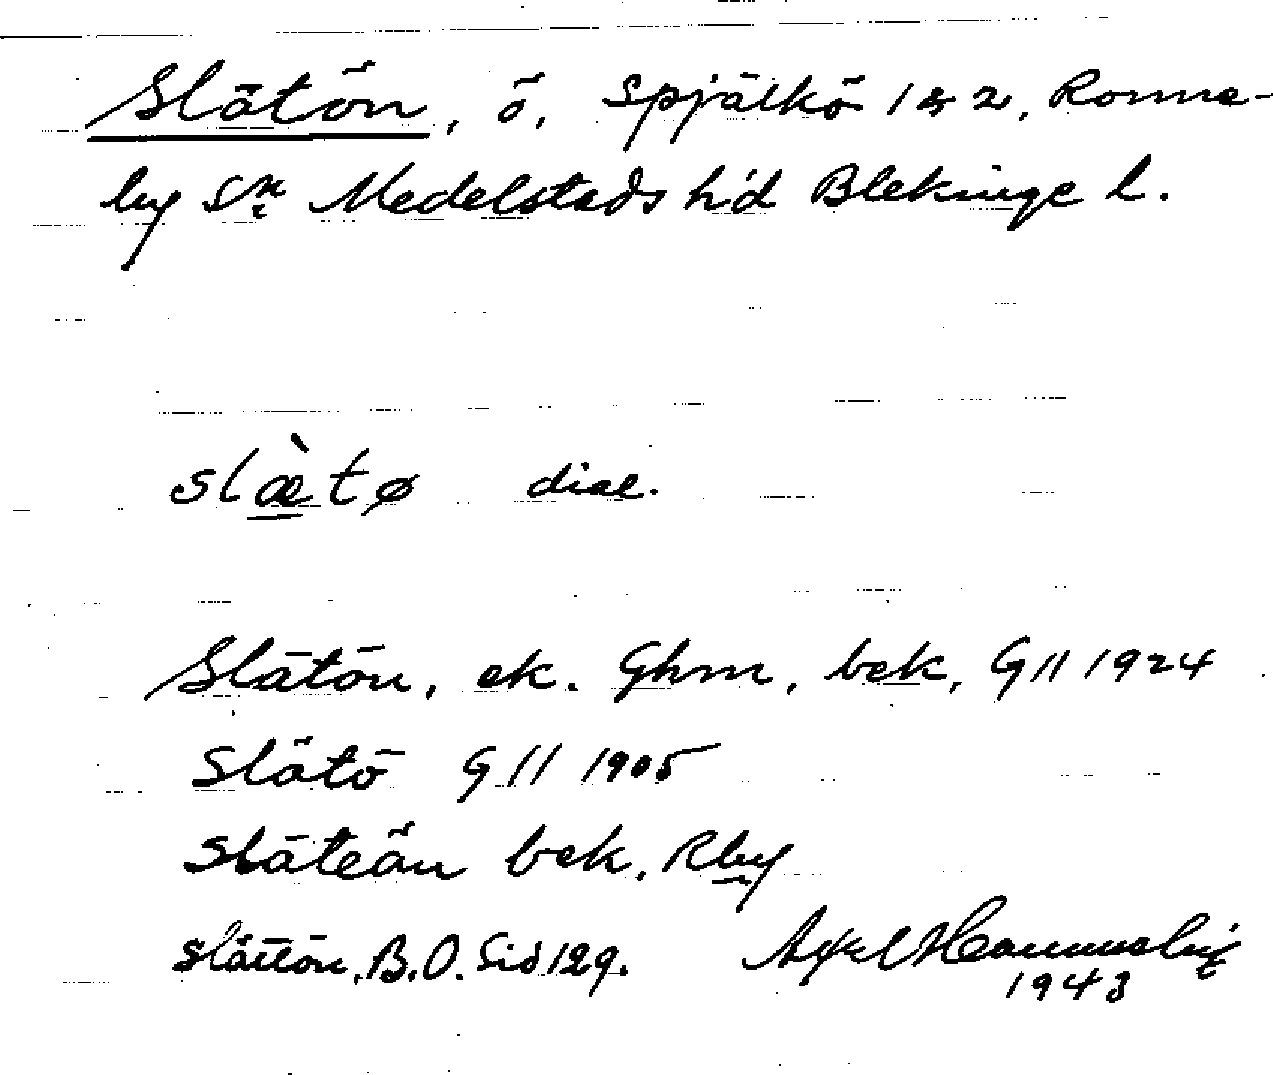 Slätön, ö, Spjälkö 1 & 2, Ronne-
by Sn Medelstads h'd Blekinge l.
slæ̀tø dial.
Slätön, ek. Ghm, bek, G11 1924
Slätö G11 1905
Släteön bek. Rby
Slättön, B.O. Sid 129.
Axel
1943